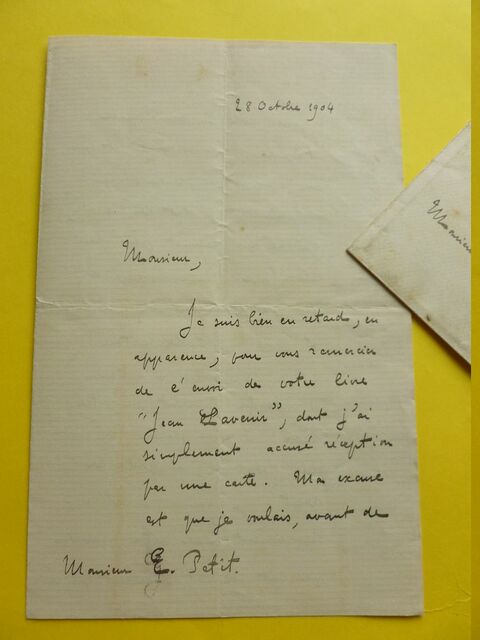 28 Octobre 1904
Monsieur,
Je suis bien en retard, en
apparence, pour vous remercier
de l'envoi de votre livre
"Jean Lavenir", dont j'ai
simplement accusé réception
par une carte. Mon excuse
est que je voulais, avant de
Monsieur E. Petit.
Monsieur